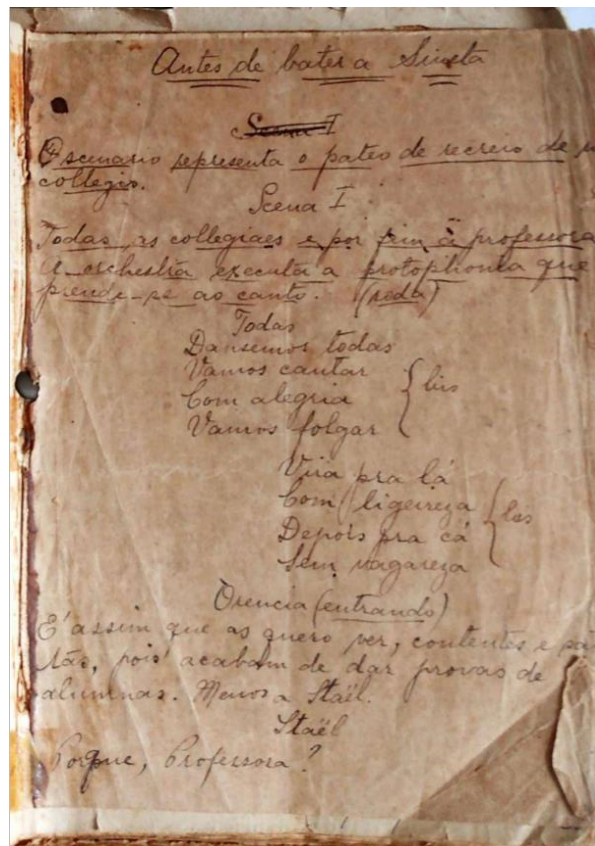 Antes de bater a Sineta
Scena I
O scenario representa o pateo de recreio de
collegio.
Scena I
Todas as collegiaes e por fim a professora
A orchestra executa a protophonia que
prende-se ao canto. (roda)
Todas
Dansemos todas
Vamos cantar
Com alegria { bis
Vamos folgar
Vira pra lá
Com ligeireza
Depois pra cá { bis
Sem vagareza
Orencia (entrando)
E' assim que as quero ver, contentes e
pois acabam de dar provas de
alumnas. Menos a Staël.
Staël
Porque, Professora?